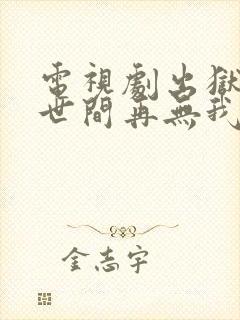 電視劇出獄
世間再無我
金志宇